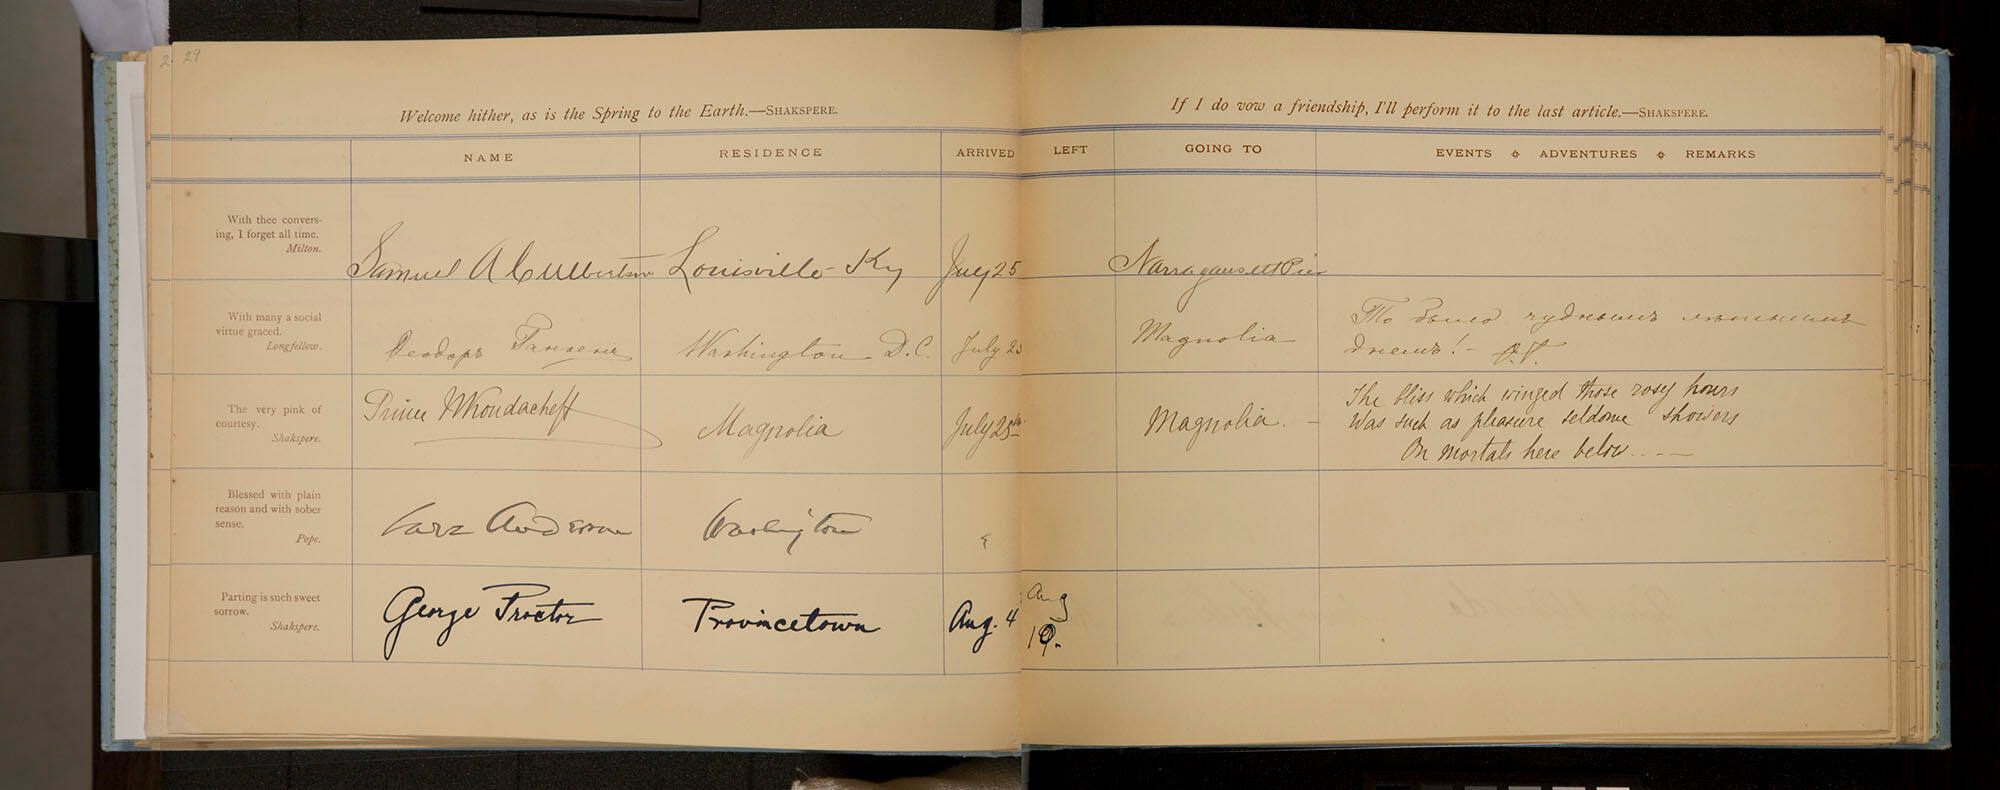 2 29
Welcome hither, as is the Spring to the Earth.—SHAKSPERE.
If I do vow a friendship, I'll perform it to the last article.—SHAKSPERE.
NAME RESIDENCE ARRIVED LEFT GOING TO EVENTS ADVENTURES REMARKS
With thee convers-
ing, I forget all time.
Milton.
Samuel A Culbertson Louisville Ky July 25 Narragansett Pier
With many a social
virtue graced.
Longfellow.
Washington D.C. July 25 Magnolia
То было чуднымъ
днемъ! -
The very pink of
courtesy.
Shakspere.
Prince Magnolia July 25th Magnolia. -
The bliss which winged those rosy hours
Was such as pleasure seldome showers
On mortals here below....—
Blessed with plain
reason and with sober
sense.
Pope.
Larz Anderson Washington
Parting is such sweet
sorrow.
Shakspere.
George Proctor Provincetown Aug. 4 Aug
19.